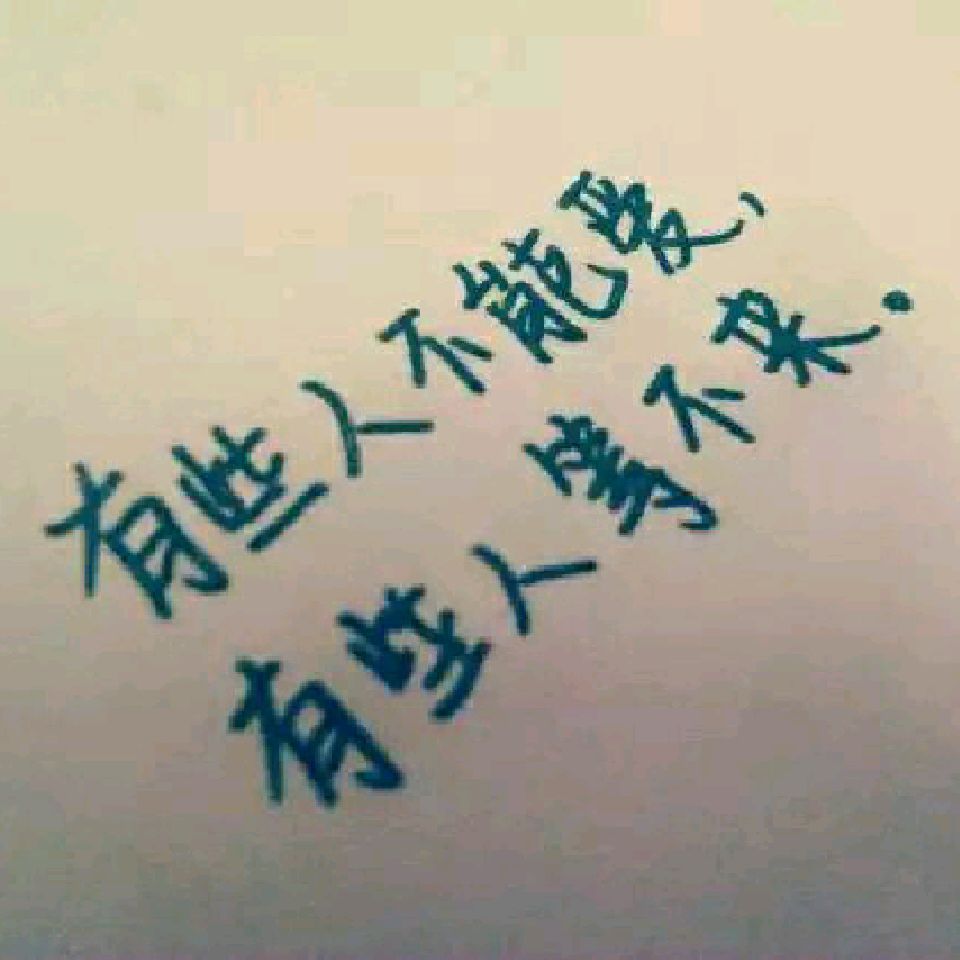 有些人不能爱,
有些人等不来.